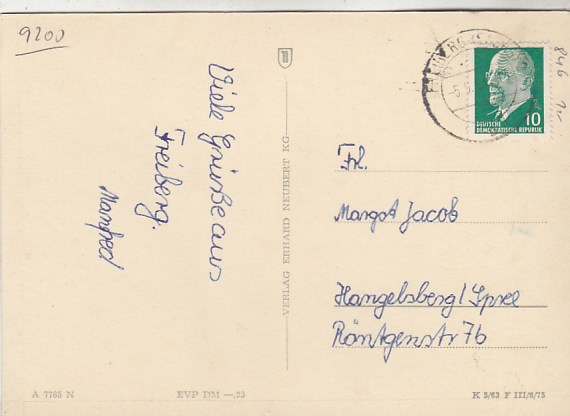 9200
Viele Grüße aus
Freiberg.
Manfred
VERLAG ERHARD NEUBERT KG
10
DEUTSCHE
DEMOKRATISCHE REPUBLIK
846
Frl.
Margot Jacob
Hangelsberg/Spree
Röntgenstr 7b
A 7765 N
EVP DM —,23
K 5/63 F III/6/75